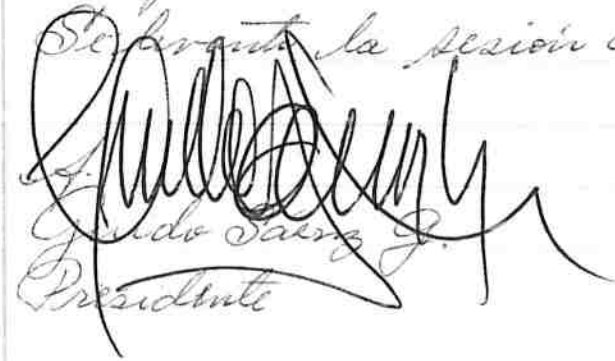 Se levanta la sesión
Guido Sáenz G.
Presidente